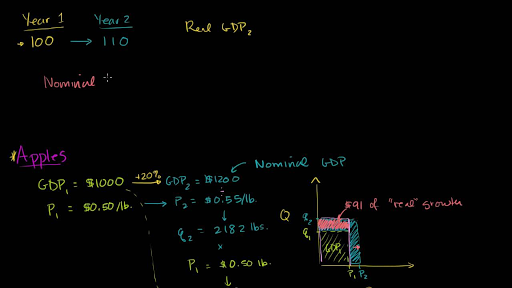 Year 1 Year 2
100 → 110
Real GDP₂
Nominal
*Apples
GDP₁ = $1000 +20% → GDP₂ = $1200
Nominal GDP
P₁ = $0.50/lb. → P₂ = $0.55/lb.
↓
q₂ = 2182 lbs.
×
P₁ = $0.50 lb.
↓
$91 of "real" growth
Q
q₂
q₁
GDP₁
P₁ P₂